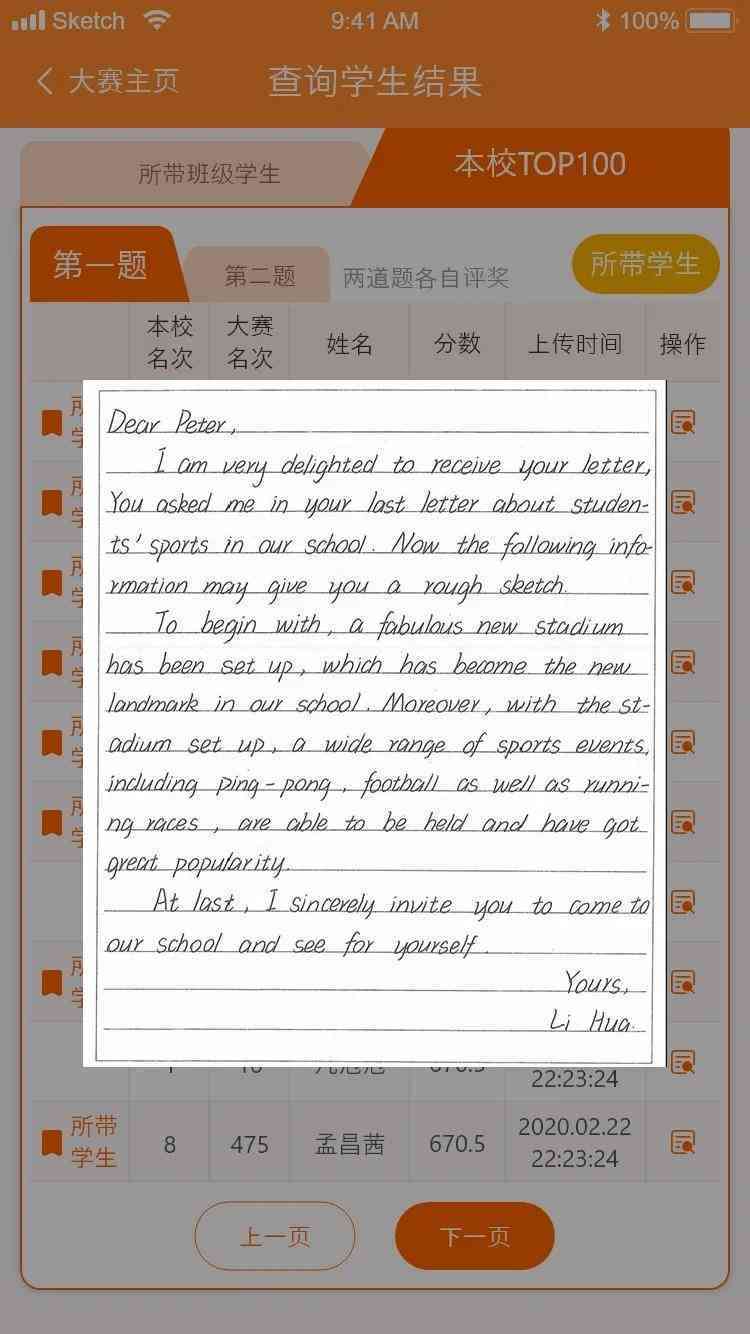 Sketch 9:41 AM 100%
大赛主页 查询学生结果
所带班级学生 本校TOP100
第一题 第二题 两道题各自评奖 所带学生
本校名次 大赛名次 姓名 分数 上传时间 操作
Dear Peter,
I am very delighted to receive your letter,
You asked me in your last letter about studen-
ts' sports in our school. Now the following info-
rmation may give you a rough sketch.
To begin with, a fabulous new stadium
has been set up, which has become the new
landmark in our school. Moreover, with the st-
adium set up, a wide range of sports events,
including ping-pong, football as well as runni-
ng races, are able to be held and have got
great popularity.
At last, I sincerely invite you to come to
our school and see for yourself.
Yours,
Li Hua.
22:23:24
所带学生 8 475 孟昌茜 670.5 2020.02.22 22:23:24
上一页 下一页